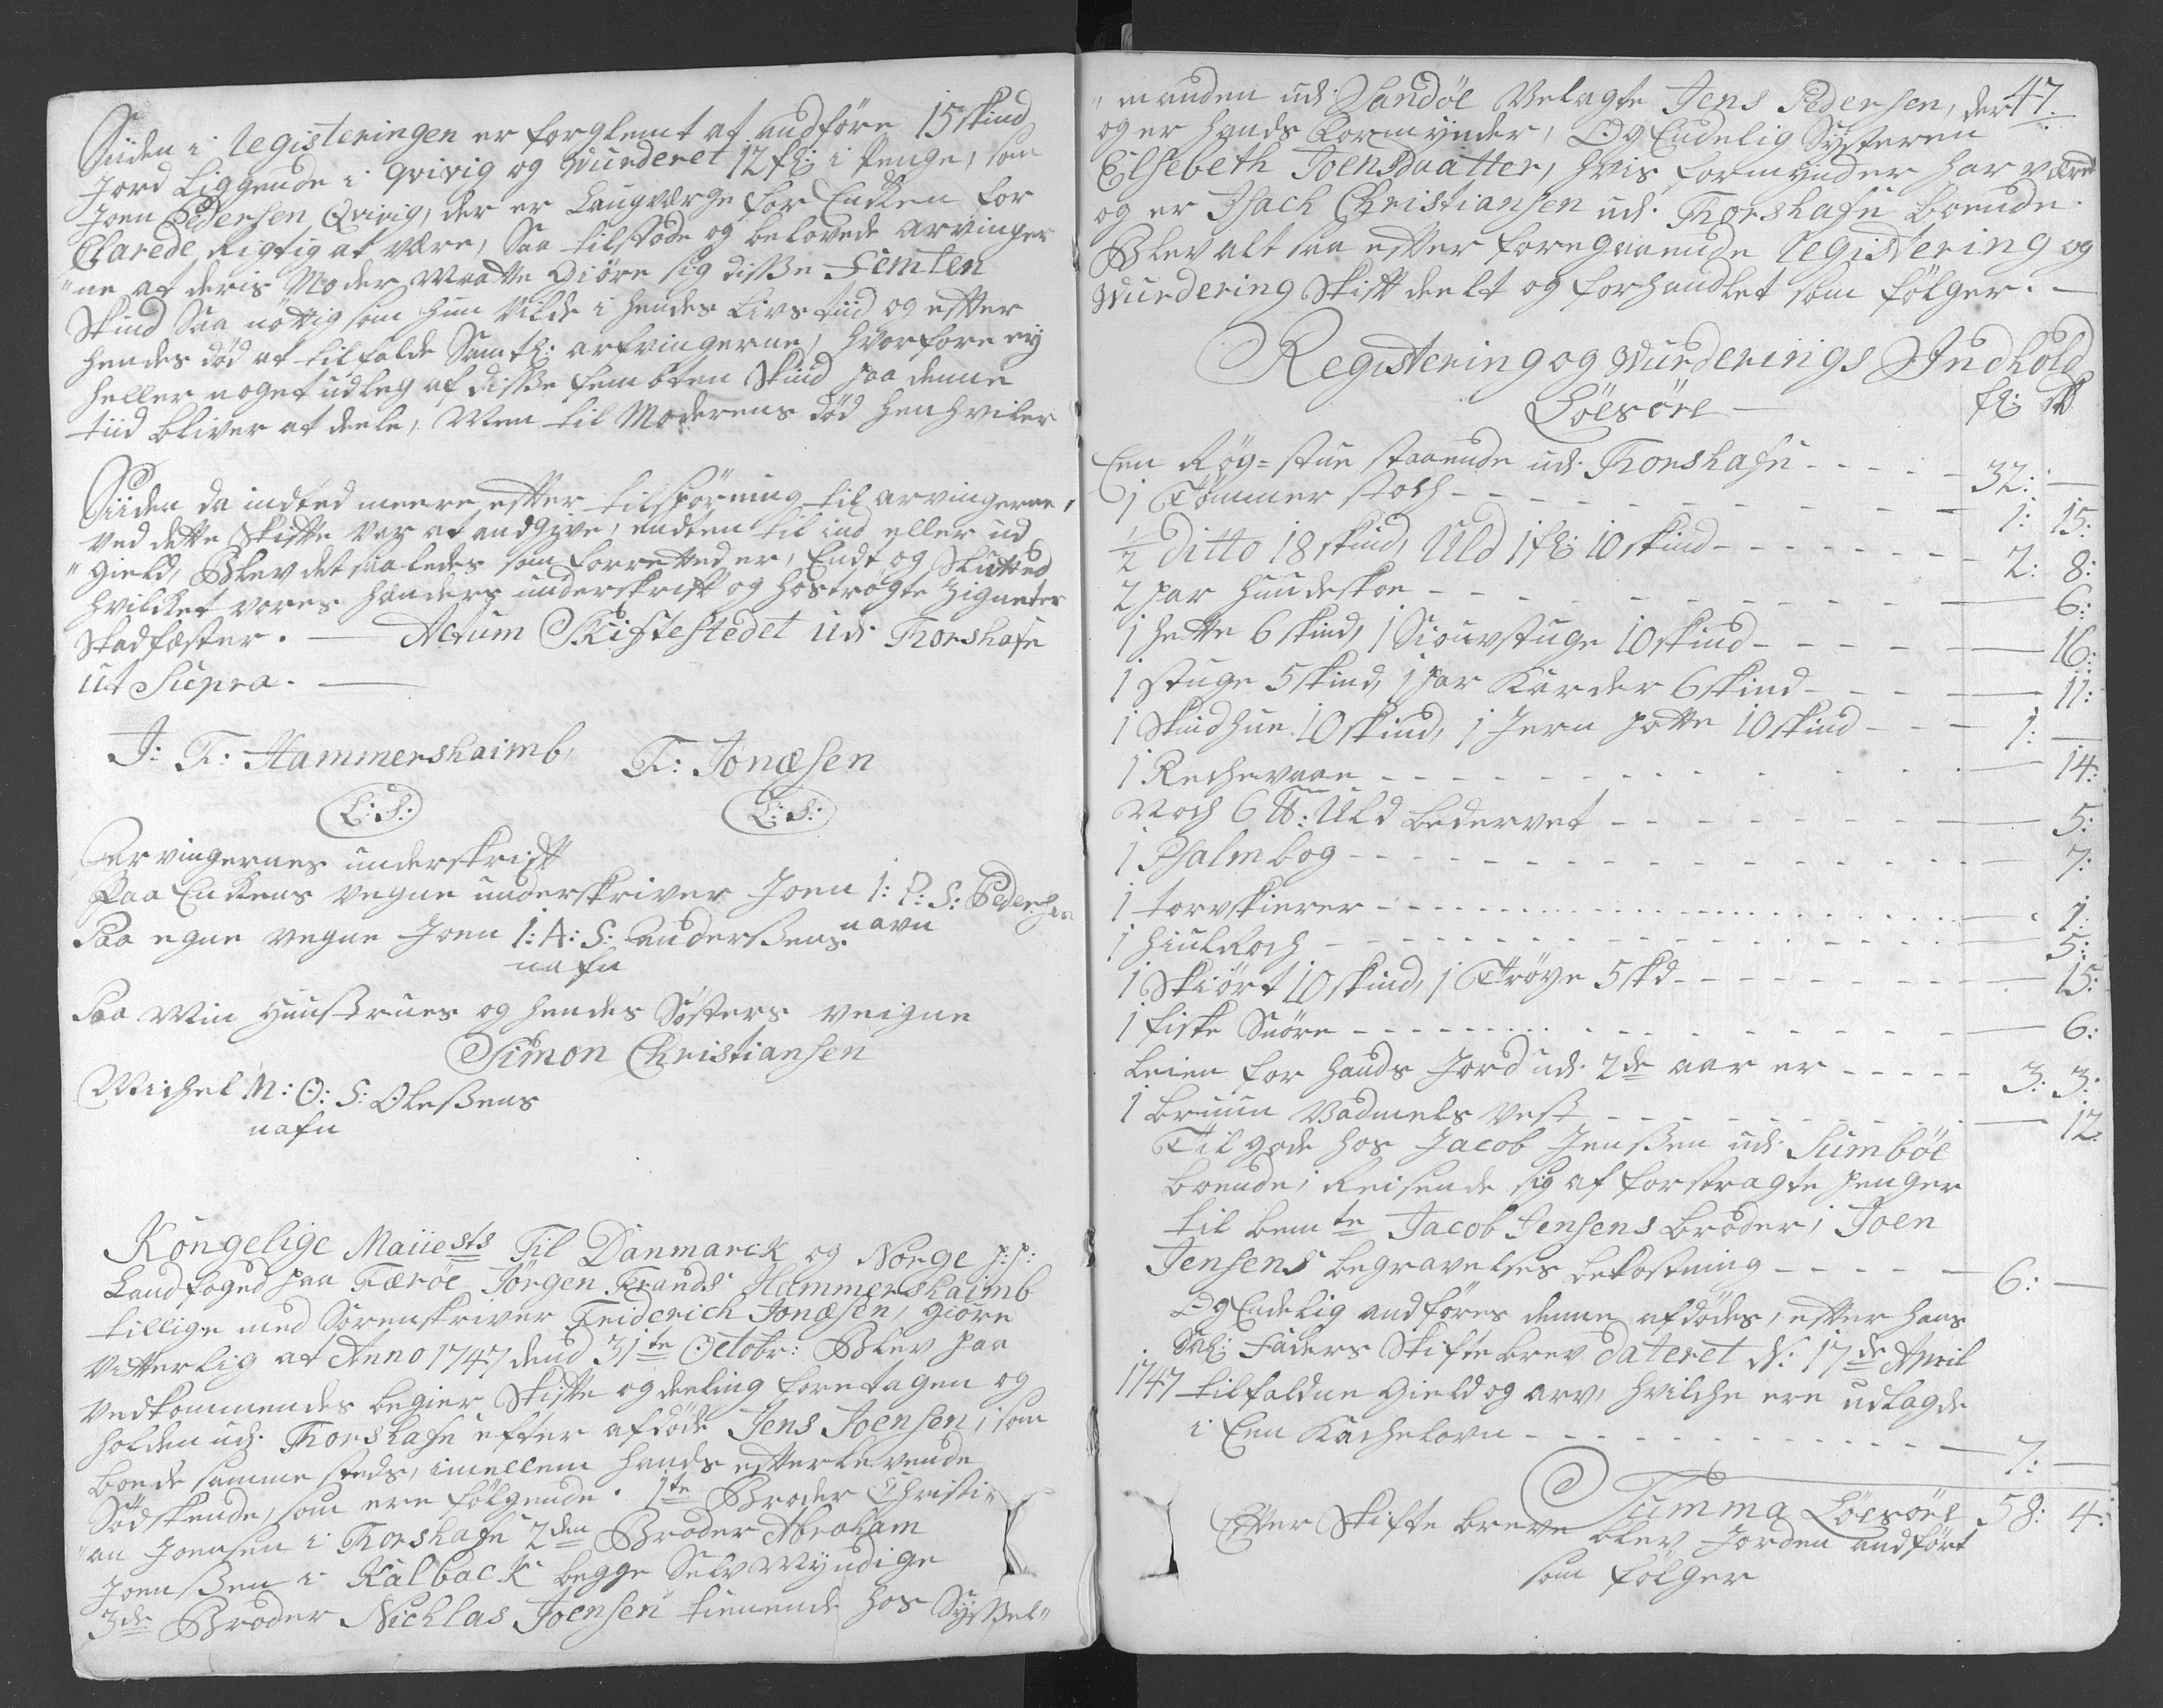 Siiden i Registeringen er forglemt at andföre 15 skind
Jord liggende i Qvivig og Wurderet 12 fl: i Penge, som
Joen Pedersen Qvivig, der er Laugværge for Encken for
Clarede Rigtig at være, Saa tilstode og belovede arvinger
"ne at deris Moder Maatte Giöre sig disse Femten
Skind Saa nöttig som hun Vilde i hendes Livs tiid og efter
hendes död at tilfalde Samtl: arfvingerne, hvorfore ey
heller noget udleg af disse fembten Skind paa denne
tiid bliver at deele, Men til Moderens Död henhviler
Siiden da indted meere efter tilspörning til arvingerne,
ved dette Skifte var at andgive, endten til ind eller ud
"Gield, Blev det saaledes som forretted er, Endt og Slutted
hvilcket vores hænders underskrift og hoströgte Zigneter
Stadfæster. — Actum Skiftestedet udi Thorshafn
ut Supra. —
J: F: Hammershaimb, F: Jonæsen
L:S: L:S:
Arvingernes underskrift
Paa Enckens vegne underskriver Joen I: P: S: Pedersen
navn
Paa egne vegne Joen I: A: S: Anderssens
nafn
Paa Min Huustrues og hendes Söfters veigne
Simon Christiansen
Michel M: O: S: Olessens
nafn
Kongelige Maiies<sup>ts</sup> Til Danmarck og Norge p:p:
Landfoged paa Færöe Jörgen Frands Hammershaimb
tillige med Sorenskriver Friderich Jonæsen, giöre
vitterlig at Anno 1747 dend 31te Octobr: Blev paa
vedkommendes begier Skifte og deeling foretagen og
holden udi Thorshafn efter afdöde Jens Joensen, som
boede samme steds, imellem hands efterlevende
Södskende, som ere fölgende. 1te Broder Christi"
"an Joensen i Thorshafn 2den Broder Abraham
Joenssen i Kalback begge Selv Myndige
3de Broder Nichlas Joensen tienende hos Syssel"
47.
"manden udi Sandöe Velagte Jens Pedersen, der
og er hands Formynder, Og Endelig Systeren
Elsebeth Joensdaatter, hvis formynder har vært
og er Isach Christiansen udi Thorshafn boende.
Blev alt saa efter foregaaende Registering og
Wurdering Skift deelt og forhandlet som fölger. —
Registering og Wurderings Indhold
Löesöre — fl: sk
Een Rög=stue staaende udi Thorshafn - - - - - 32: —
1 Tömmer stoch - - - - - 1: 15:
1/2 Ditto 18 skind, Uld 1 fl: 10 skind - - - - - 2: 8:
2 par Hundeskoe - - - - - — 6:
1 hette 6 skind, 1 Siouvstuge 10 skind - - - - - — 16:
1 stuge 5 skind, 1 par Karder 6 skind - - - - — 11:
1 Skindhue 10 skind, 1 Jern potte 10 skind - - - 1: —
1 Rechevaae - - - - - — 14:
Noch 6 ℔: Uld bedervet - - - - - — 5:
1 Psalmbog - - - - - — 7:
1 torvskierer - - - - - — 1:
1 Hiulroch - - - - - — 5:
1 Skiört 10 skind, 1 Tröye 5 skd - - - - - — 15:
1 fiske Snöre - - - - - — 6:
Leien for hands Jord udi 2de aar er - - - - - 3: 3:
1 bruun Vadmels Vest - - - - - — 12.
Tilgode hos Jacob Jenssen udi Sumböe
boende, Reisende sig af forstragte penger
til bemte Jacob Jensens broder, Joen
Jensens begravelses bekostning - - - - - 6: —
Og Endelig andföres denne afdödes, efter hans
Sal: Faders Skiftebrev Dateret d: 17de April
1747 tilfaldne Gield og arv, hvilche ere udlagde
i Een Kachelovn - - - - - 7: —
Summa Löesöre 58: 4:
Efter Skifte breve blev Jorden andfört
som fölger